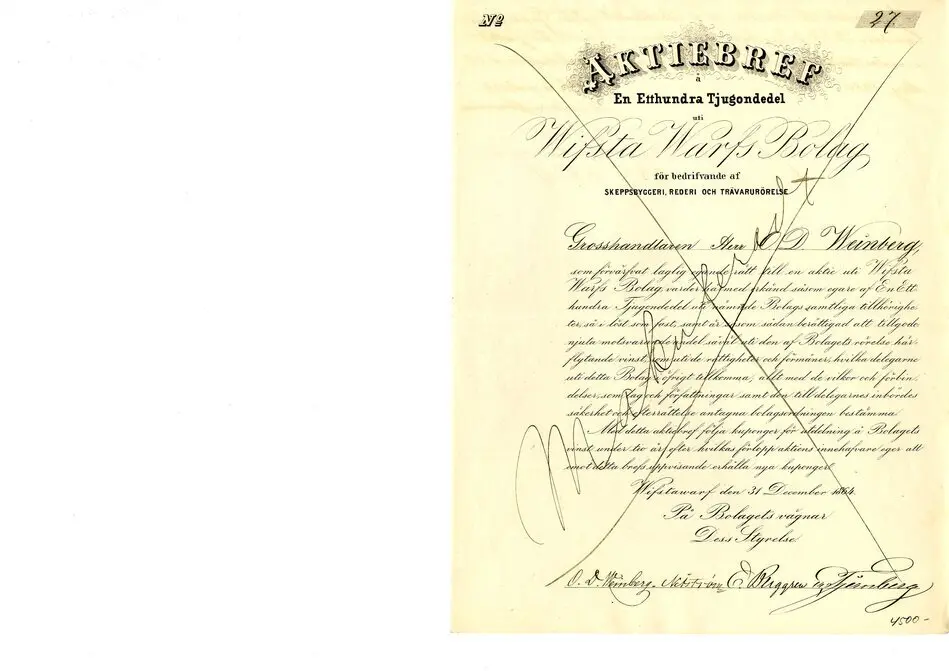 No 27
AKTIEBREF
å
En Etthundra Tjugondedel
uti
Wifsta Warfs Bolag
för bedrifvande af
SKEPPSBYGGERI, REDERI OCH TRÄVARURÖRELSE
Grosshandlaren Herr O. D. Weinberg,
som förvärfvat laglig egande rätt till en aktie uti Wifsta
Warfs Bolag, varder härmed erkänd såsom egare af En Ett-
hundra Tjugondedel uti nämnde Bolags samtliga tillhörighe-
ter, så i löst som fast, samt är såsom sådan berättigad att tillgodo
njuta motsvarande andel såväl uti den af Bolagets rörelse här-
flytande vinst, som uti de rättigheter och förmåner, hvilka delegarne
uti detta Bolag i öfrigt tillkomma, allt med de vilkor och förbin-
delser, som lag och författningar samt den till delegarnes inbördes
säkerhet och efterrättelse antagna bolagsordningen bestämma.
Med detta aktiebref följa kuponger för utdelning å Bolagets
vinst under tio år, efter hvilkas förlopp aktiens innehafvare eger att
emot detta brefs uppvisande erhålla nya kuponger.
Wifstawarf den 31 December 1864.
På Bolagets vägnar
Dess Styrelse.
O. D. Weinberg. E. Berggren
Makulerad
4500-